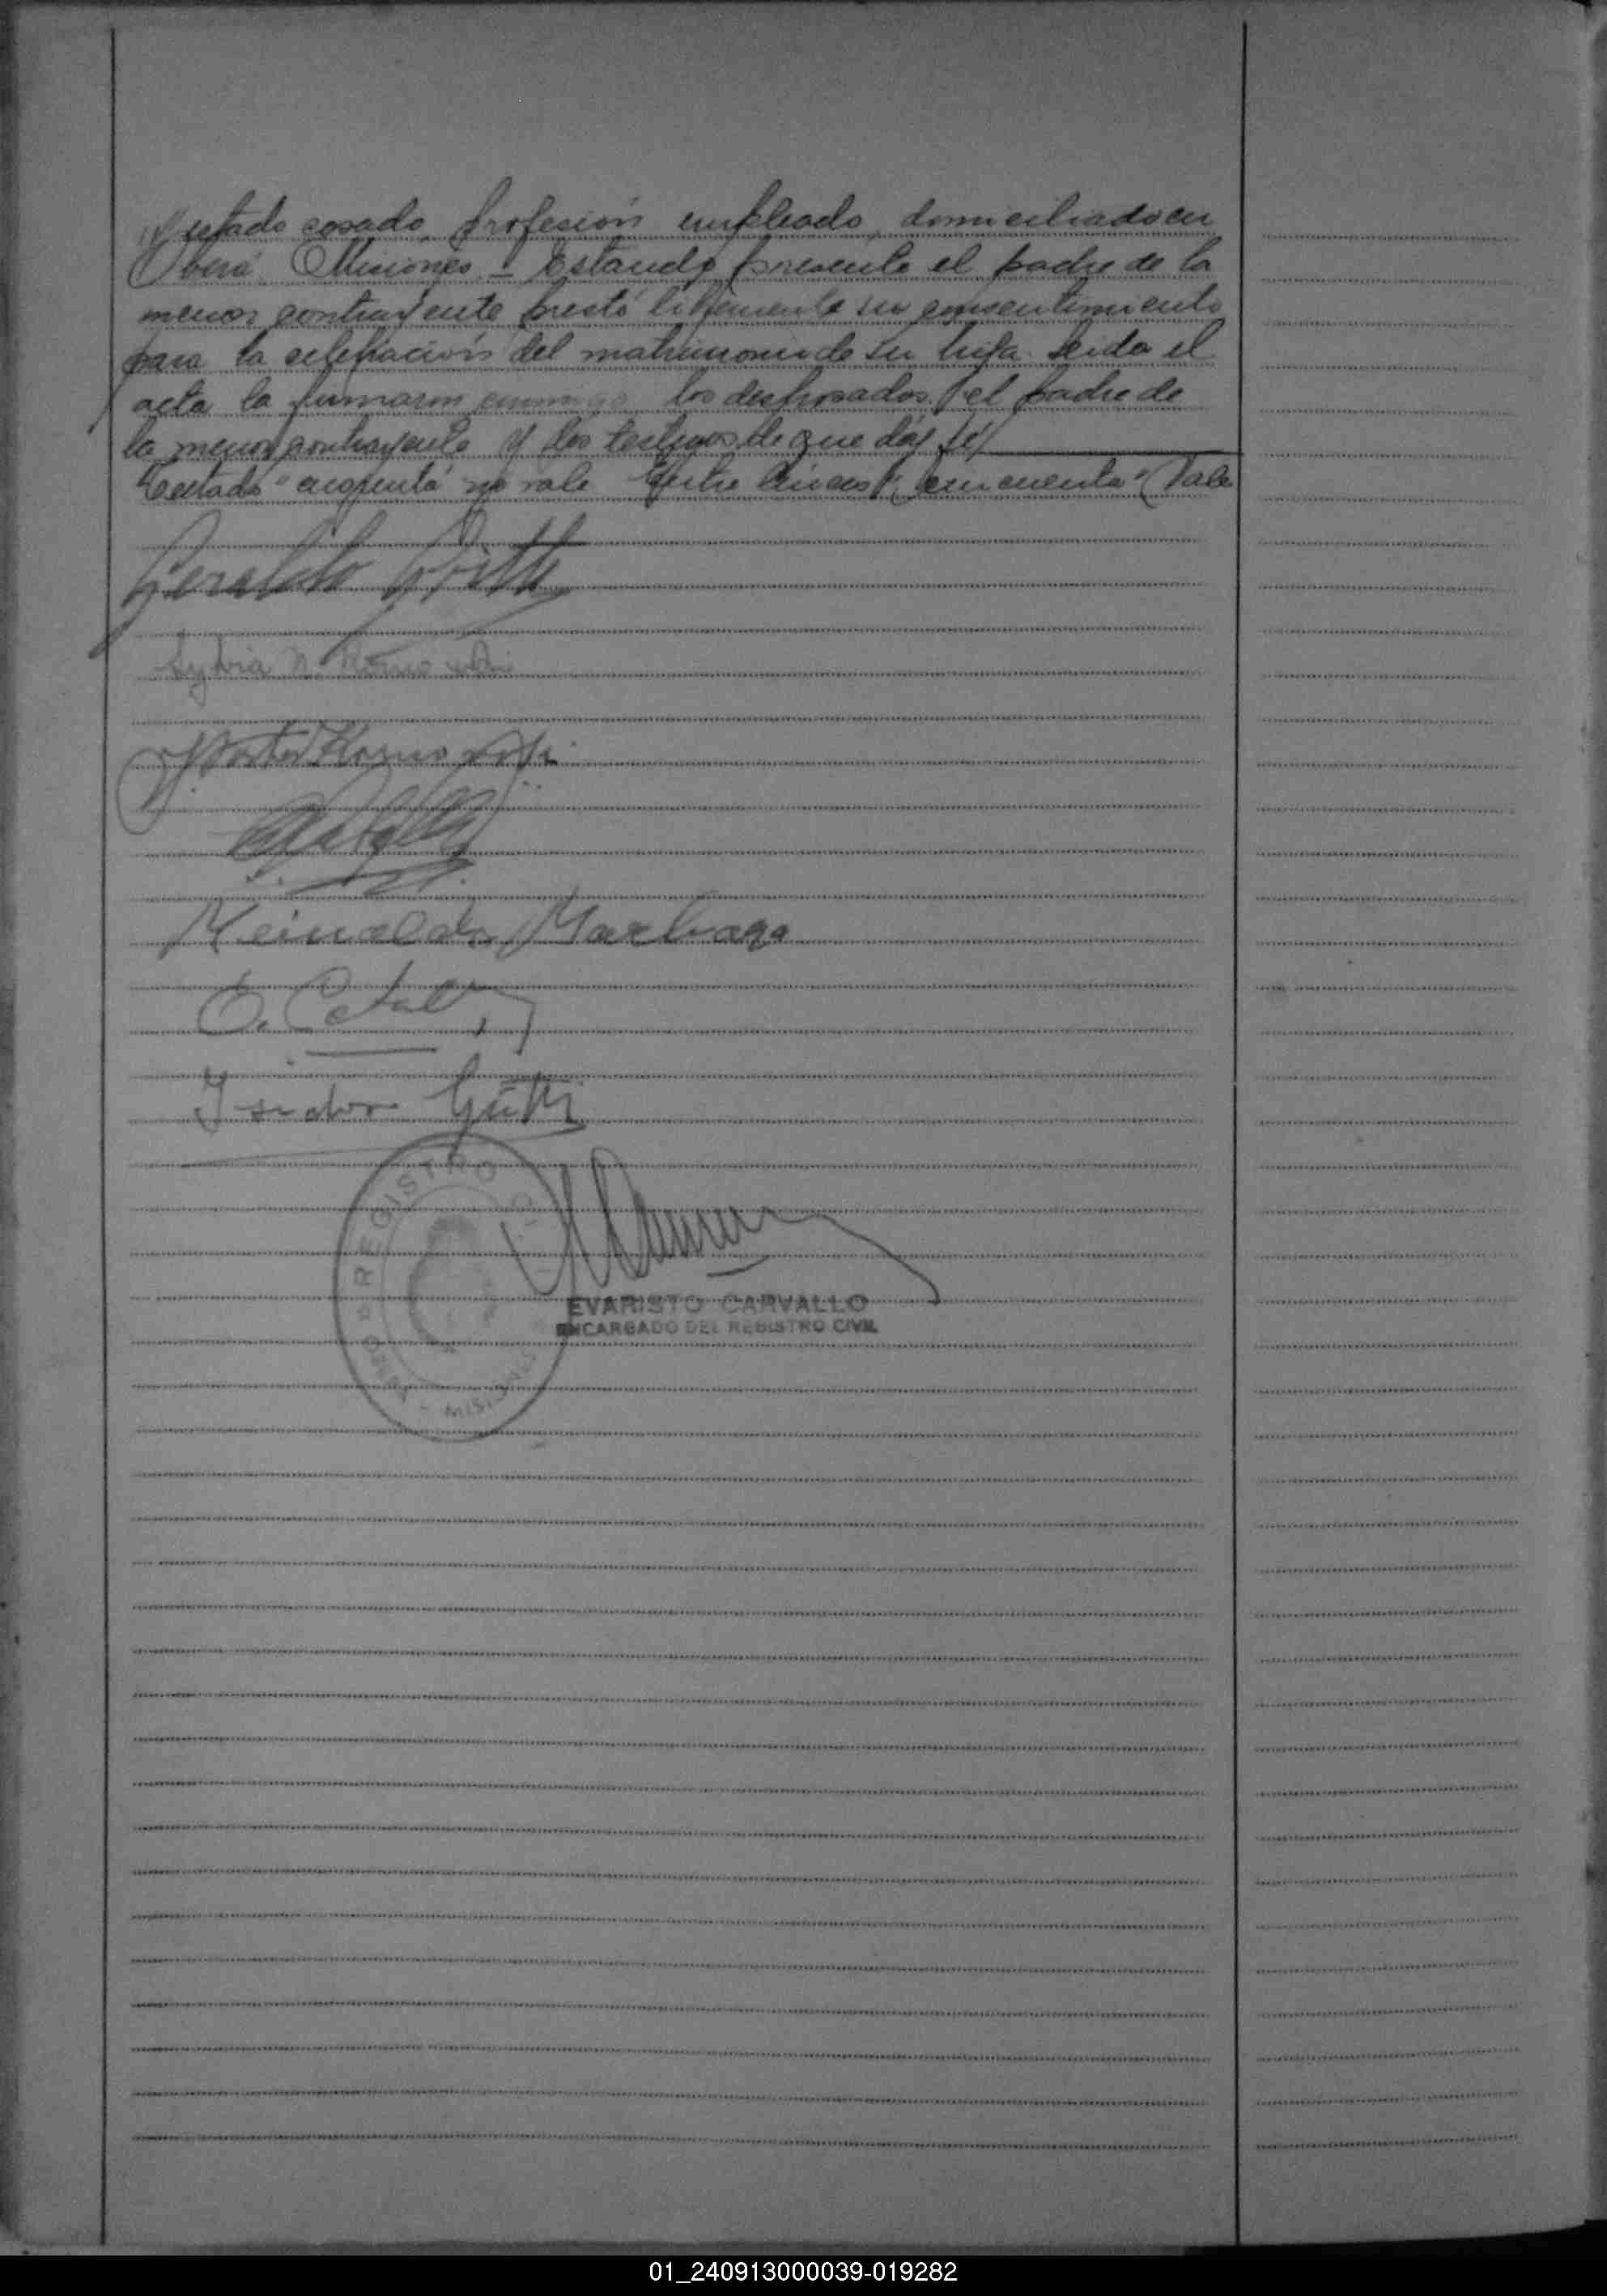 estado casado, profesión empleado, domiciliado en
Oberá Misiones - Estando presente el padre de la
menor contrayente prestó libremente su consentimiento
para la celebración del matrimonio de su hija. Leida el
acta la firmaron conmigo los desposados, el padre de
la menor contrayente y los testigos de que doy fé/
Testado " no vale Entre lineas "cincuenta" Vale
Geraldo Witt
Sylvia N.
Reinaldo
Isidor Gütti
REGISTRO
MISIONES
EVARISTO CARVALLO
ENCARGADO DEL REGISTRO CIVIL
01_240913000039-019282